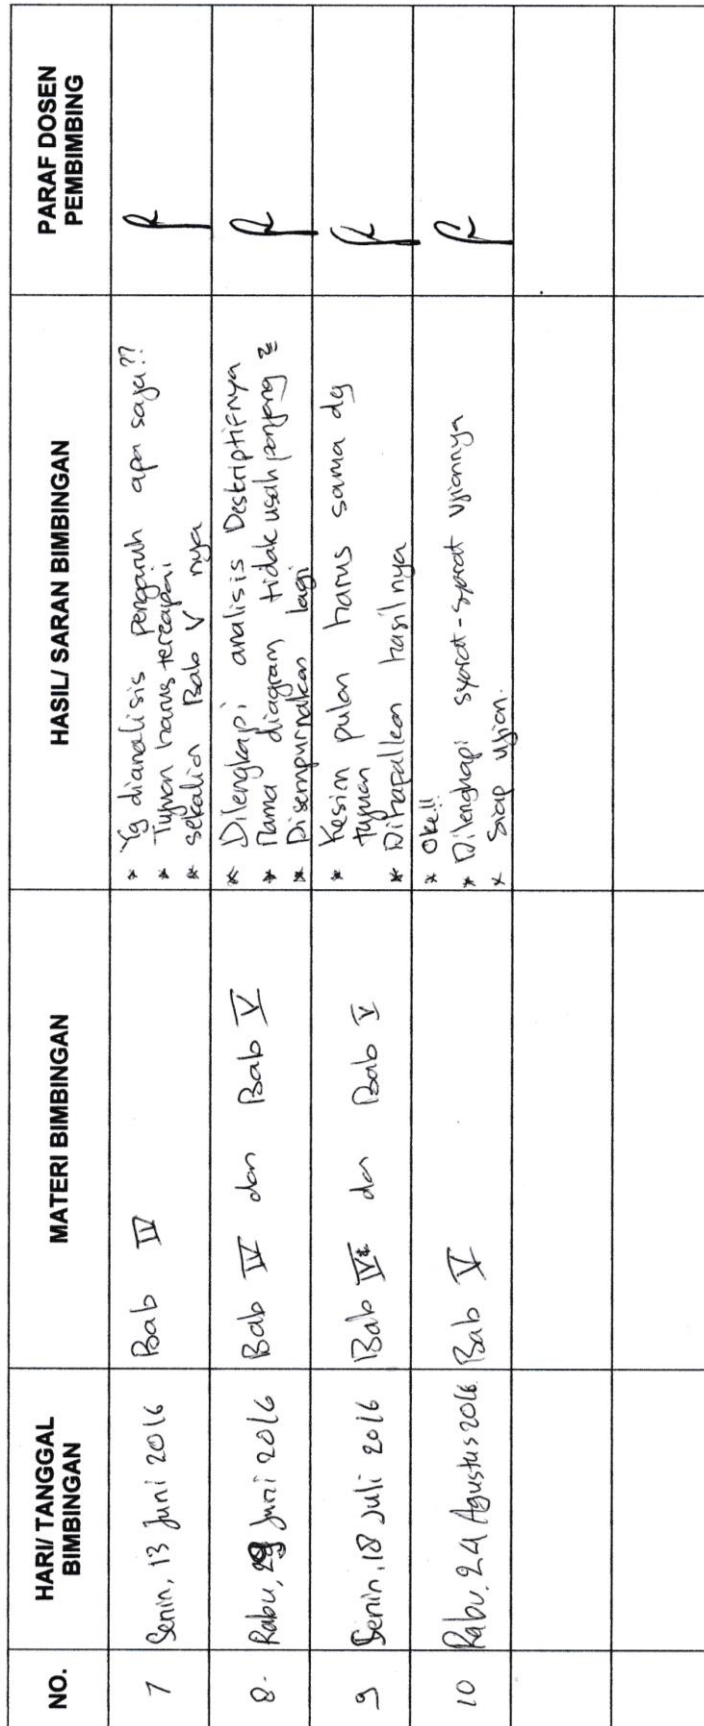 NO.
HARI/ TANGGAL
BIMBINGAN
MATERI BIMBINGAN
HASIL/ SARAN BIMBINGAN
PARAF DOSEN
PEMBIMBING
7
Senin, 13 Juni 2016
Bab IV
* Yg dianalisis pengaruh apa saja??
* Tujuan harus tercapai
* sekalian Bab V nya
8.
Rabu, 29 Juni 2016
Bab IV dan Bab V
* Dilengkapi analisis Deskriptifnya
* Nama diagram tidak usah panjang 2
* Disempurnakan lagi
9
Senin, 18 Juli 2016
Bab IV dan Bab V
* Kesim pulan harus sama dg
tujuan
* Dihapalkan hasilnya
10
Rabu, 24 Agustus 2016
Bab V
* Oke!!
* Dilengkapi syarat-syarat Ujiannya
* Siap Ujian.